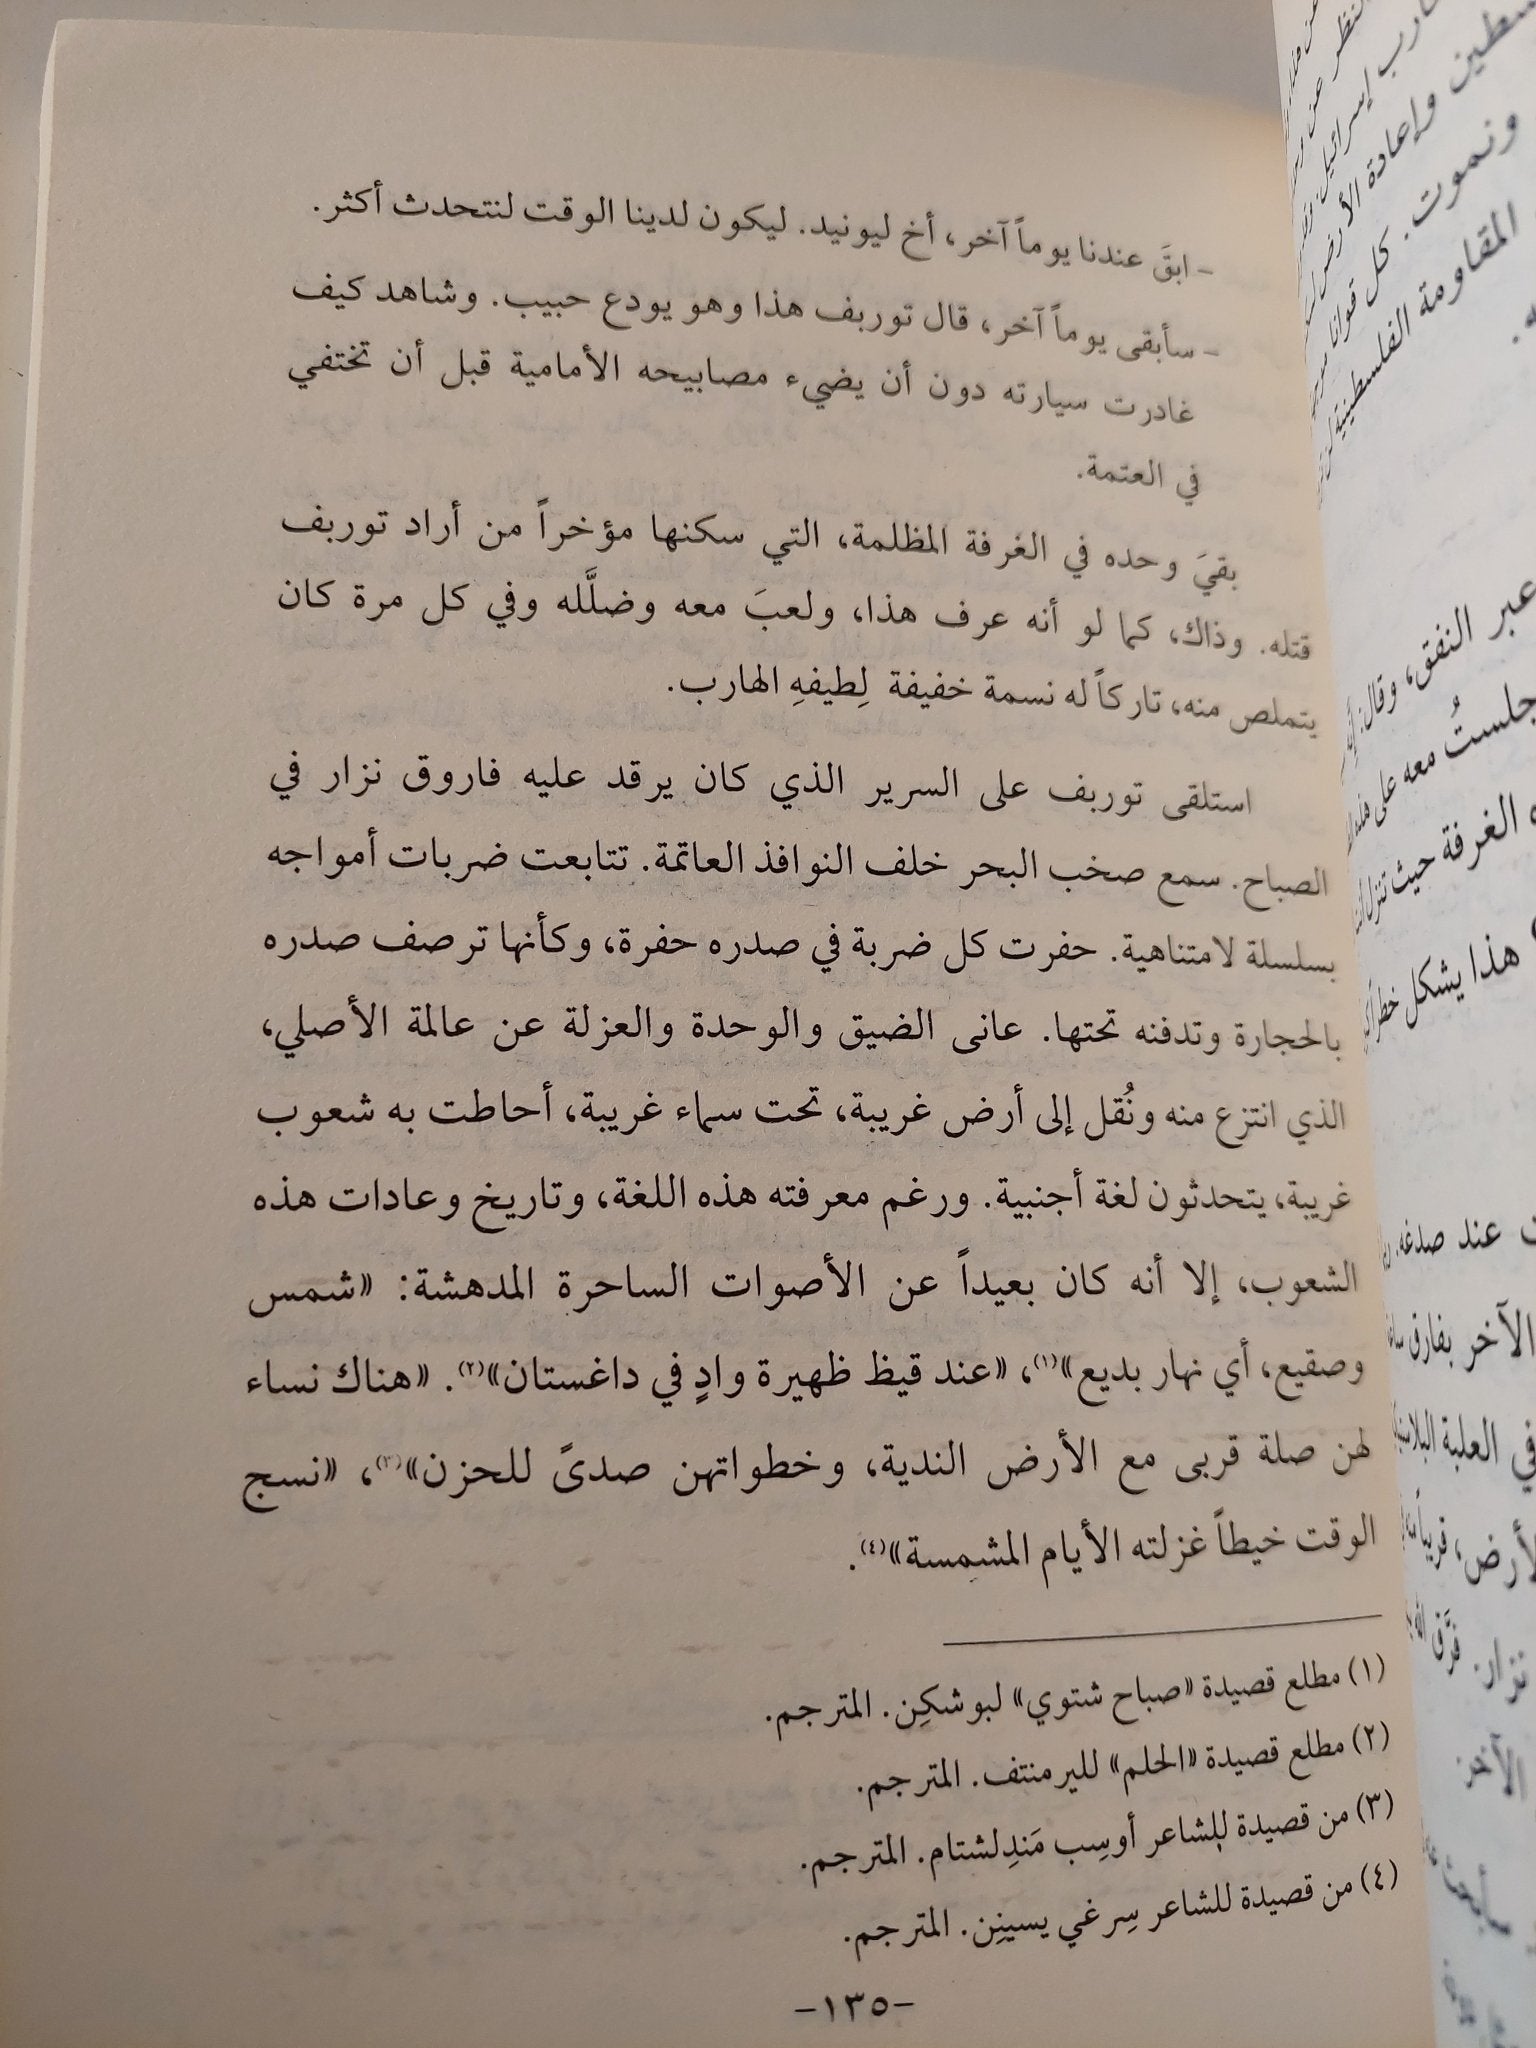 - ابقَ عندنا يوماً آخر، أخ ليونيد. ليكون لدينا الوقت لنتحدث أكثر.
- سأبقى يوماً آخر، قال توربف هذا وهو يودع حبيب. وشاهد كيف
غادرت سيارته دون أن يضيء مصابيحه الأمامية قبل أن تختفي
في العتمة.
بقيَ وحده في الغرفة المظلمة، التي سكنها مؤخراً من أراد توربف
قتله. وذاك، كما لو أنه عرف هذا، ولعبَ معه وضلَّله وفي كل مرة كان
يتملص منه، تاركاً له نسمة خفيفة لِطيفهِ الهارب.
استلقى توربف على السرير الذي كان يرقد عليه فاروق نزار في
الصباح. سمع صخب البحر خلف النوافذ العاتمة. تتابعت ضربات أمواجه
بسلسلة لامتناهية. حفرت كل ضربة في صدره حفرة، وكأنها ترصف صدره
بالحجارة وتدفنه تحتها. عانى الضيق والوحدة والعزلة عن عالمة الأصلي،
الذي انتزع منه ونُقل إلى أرض غريبة، تحت سماء غريبة، أحاطت به شعوب
غريبة، يتحدثون لغة أجنبية. ورغم معرفته هذه اللغة، وتاريخ وعادات هذه
الشعوب، إلا أنه كان بعيداً عن الأصوات الساحرة المدهشة: «شمس
وصقيع، أي نهار بديع»(١)، «عند قيظ ظهيرة وادٍ في داغستان»(٢). «هناك نساء
لهن صلة قربى مع الأرض الندية، وخطواتهن صدىً للحزن»(٣)، «نسج
الوقت خيطاً غزلته الأيام المشمسة»(٤).
(١) مطلع قصيدة «صباح شتوي» لبوشكِن. المترجم.
(٢) مطلع قصيدة «الحلم» لليرمنتف. المترجم.
(٣) من قصيدة للشاعر أوسِب مَندِلشتام. المترجم.
(٤) من قصيدة للشاعر سِرغي يسينِن. المترجم.
-١٣٥-
عبر النفق، وقال:
جلستُ معه على
الغرفة حيث تنزل
هذا يشكل خطراً
عند صدغه.
الآخر بفارق
في العلبة
نزار. فرَّق الله
الآخر